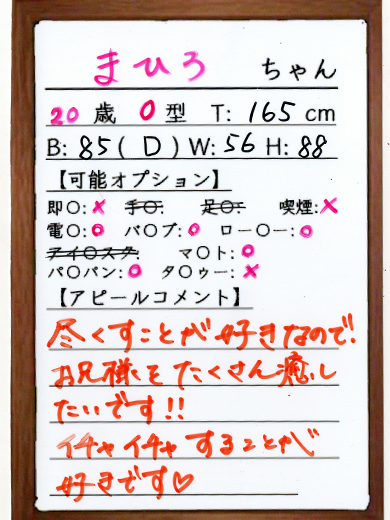 まひろ ちゃん
20 歳 O 型 T: 165 cm
B: 85 ( D ) W: 56 H: 88
【可能オプション】
即〇: × 手〇: 足〇: 喫煙: ×
電〇: 〇 パ〇プ: 〇 ロー〇ー: 〇
アイ〇スク: マ〇ト: 〇
パ〇パン: 〇 タ〇ゥー: ×
【アピールコメント】
尽くすことが好きなので!
お兄様をたくさん癒し
たいです!!
イチャイチャすることが
好きです♡